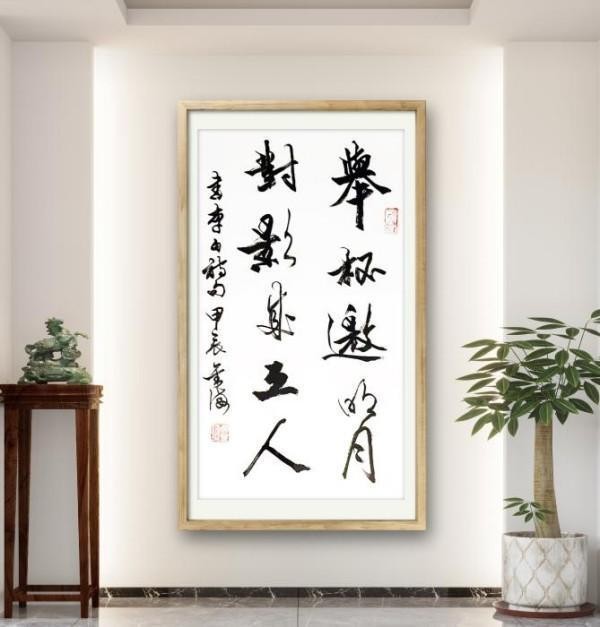 舉杯邀明月
對影成三人
書李白詩句甲辰金海